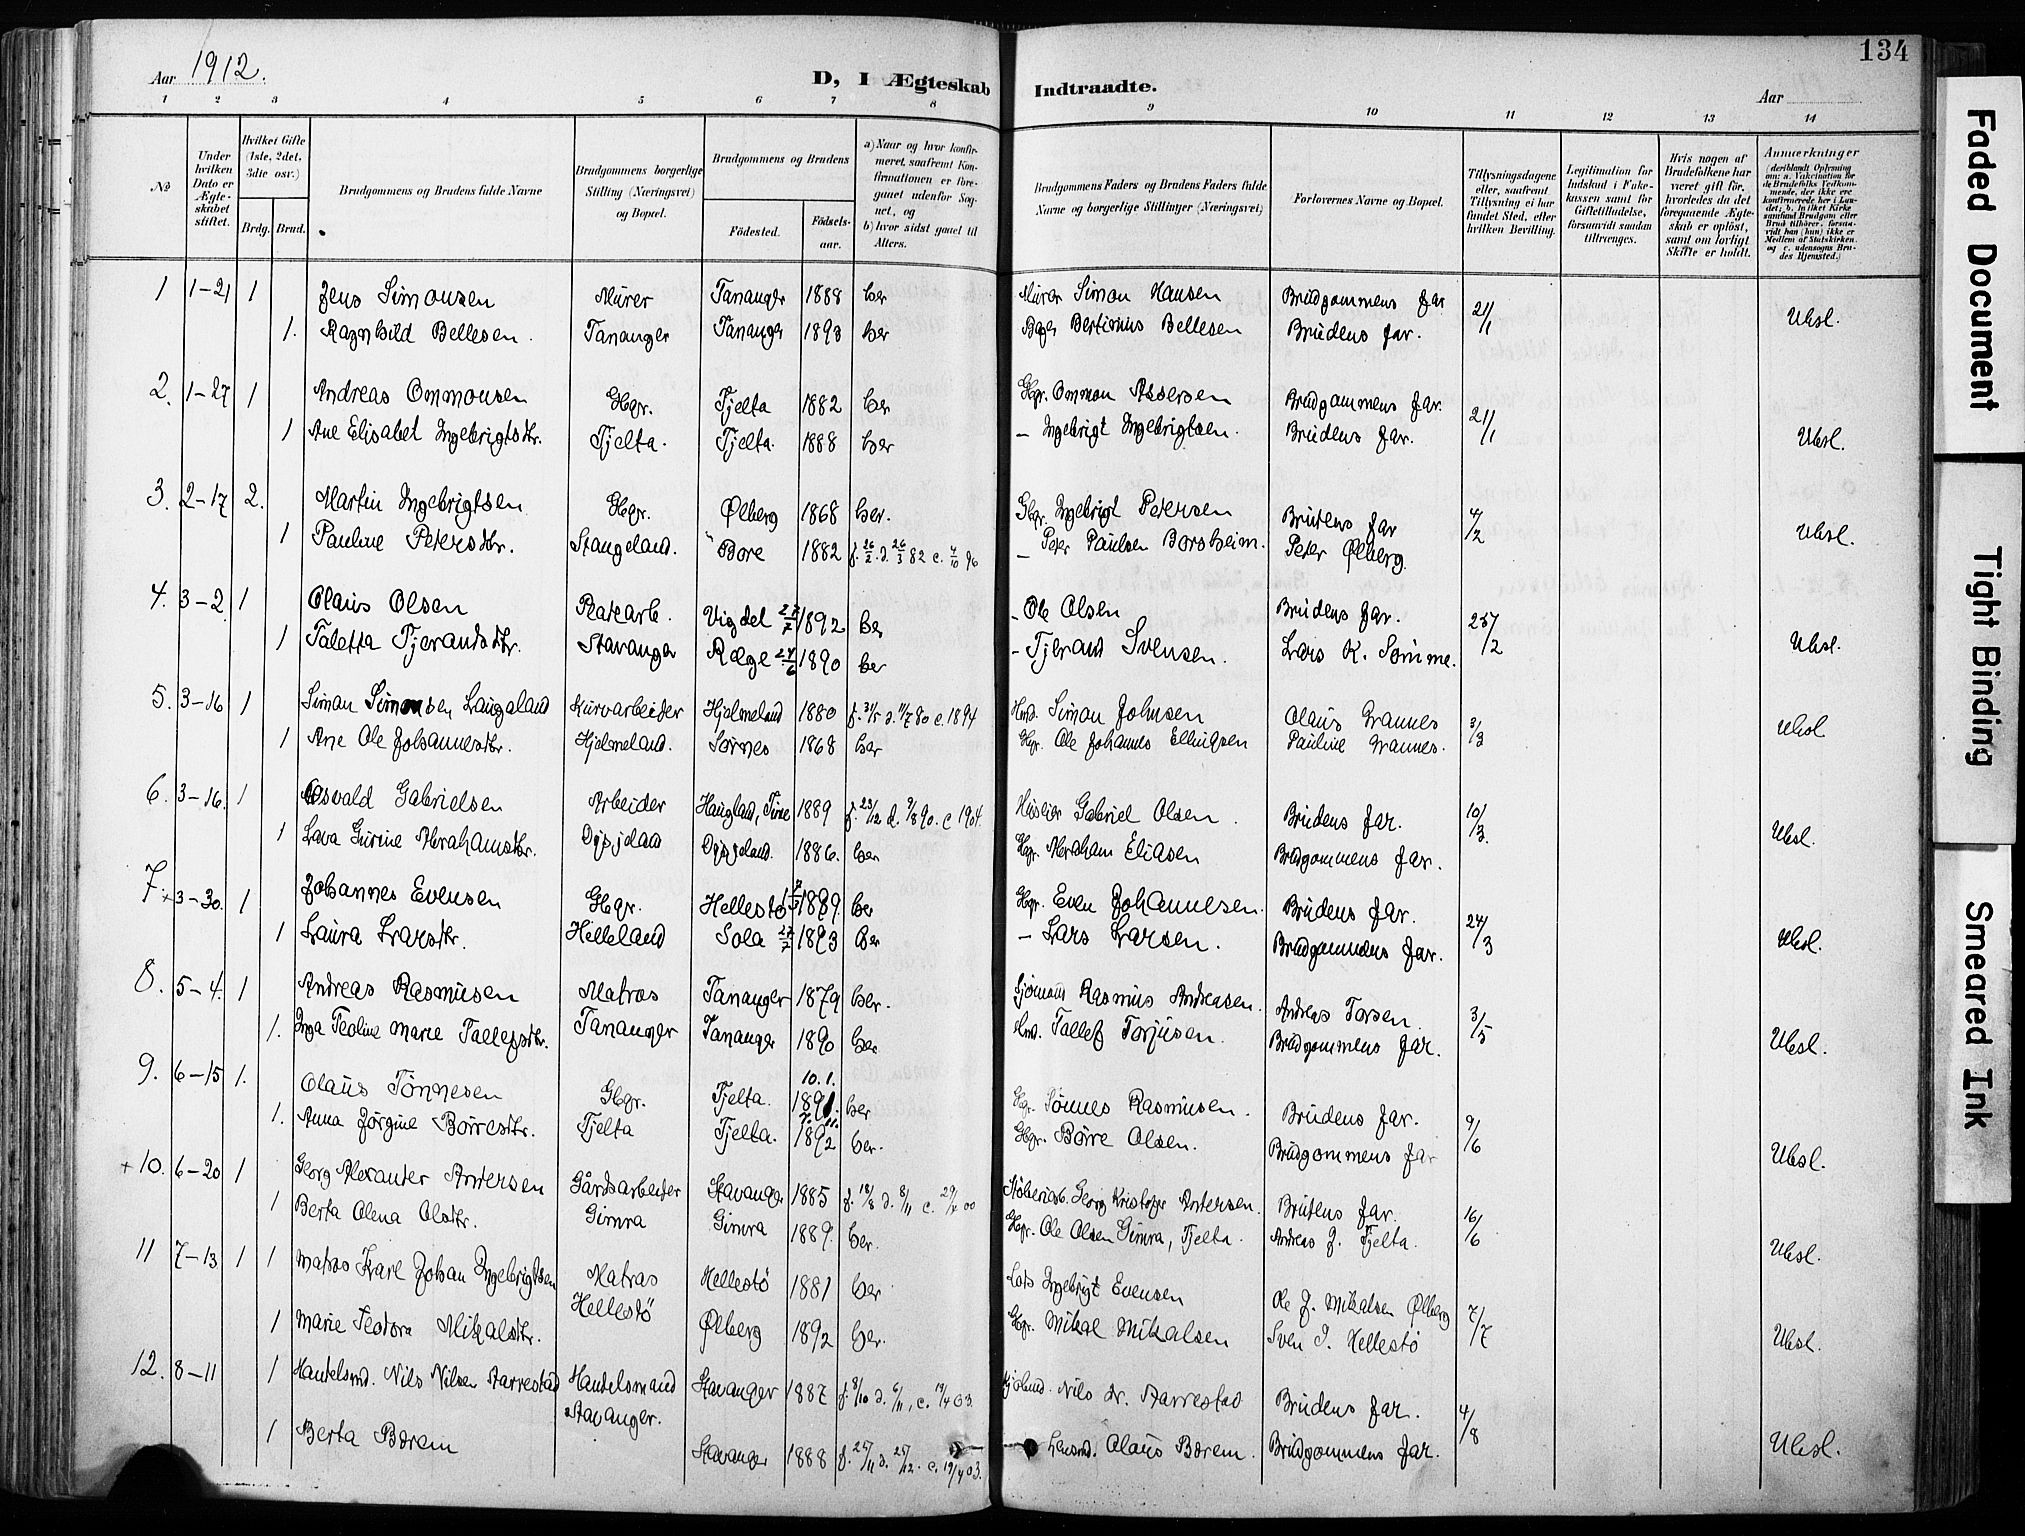 134
Aar 1912.
D, I Ægteskab Indtraadte.
Aar
1 2 3 4 5 6 7 8 9 10 11 12 13 14
No
Under hvilken Dato er Ægteskabet stiftet.
Hvilket Gifte (1ste, 2det, 3die osv.)
Brdg. Brud.
Brudgommens og Brudens fulde Navne
Brudgommens borgerlige Stilling (Næringsvei) og Bopæl.
Brudgommens og Brudens
Fødested. Fødselsaar.
a) Naar og hvor konfirmeret, saafremt Konfirmationen er foregaaet udenfor Sognet, og b) hvor sidst gaaet til Alters.
Brudgommens Faders og Brudens Faders fulde Navne og borgerlige Stillinger (Næringsvei)
Forlovernes Navne og Bopæl.
Tillysningsdagene eller, saafremt Tillysning ei har fundet Sted, efter hvilken Bevilling.
Legitimation for Indskud i Fakekassen samt for Giftetilladelse, forsaavidt saadan tiltrænges.
Hvis nogen af Brudefolkene har været gift før, hvorledes da det foregaaende Ægteskab er opløst, samt om lovligt Skifte er holdt.
Anmærkninger (deriblandt Oplysning om: a. Vakcination for de Brudefolks Vedkommende, der ikke ere konfirmerede her i Landet; b. hvilket Kirkesamfund Brudgom eller Brud tilhører, forsaavidt han (hun) ikke er Medlem af Statskirken, og c. udensogns Brudes Hjemsted.)
1 1-21 1 Jens Simonsen Murer Tananger 1888 her Murer Simon Hansen Brudgommens far 21/1 Ubsl.
1. Ragnhild Bellesen. Tananger Tananger 1893 her Bertinius Bellesen Brudens far.
2. 1-27 1 Andreas Ommonsen Gbgr. Tjelta 1882 her Gbgr. Ommon Assersen Brudgommens far. 21/1 Ubsl.
1 Ane Elisabet Ingebrigtsdtr. Tjelta. Tjelta. 1888 her – Ingebrigt Ingebrigtsen. Brudens far.
3. 2-17 2. Martin Ingebrigtsen Gbgr. Ølberg 1868 her. Gbgr. Ingebrigt Petersen Brudens far 4/2 Ubsl.
1 Pauline Petersdtr. Stangeland. Bore 1882 f. 26/2. d. 26/3 82 c. 4/10 96 – Peter Paulsen Borsheim. Peter Ølberg.
4. 3-2 1 Olaus Olsen Stavanger Vigdel 27/7 1892 her - Ole Olsen Brudens far. 25/2 Ubsl.
1 Taletta Tjerandsdtr. Ræge 24/6 1890 her - Tjerand Svensen. Lars K. Sømme.
5. 3-16 1 Simon Simonsen Langaland Kurvarbeider Hjelmeland 1880 f. 31/5 d. 11/7 80 c. 1894 Simon Johnsen Olaus Grannes 3/3 Ubsl
1 Ane Ole Johannesdtr. Hjelmeland. Sørnes 1868 her Gbgr. Ole Johannes Ellingsen Pauline Grannes.
6. 3-16. 1 Osvald Gabrielsen Arbeider Haugland, Time 1889 f. 23/12 d. 9/8 90. c 1904. Husleier Gabriel Olsen. Brudens far. 10/3. Ubsl.
1 Lava Gurine Abrahamsdtr. Dysjeland. 1886. her Gbgr. Abraham Eliasen Brudgommens far.
7 + 3-30. 1 Johannes Evensen Gbgr. Hellestø 1889. her Gbgr. Even Johannesen. Brudens far. 24/3 Ubsl.
1 Laura Larsdtr. Helleland Sola 27/7 1893 her – Lars Larsen. Brudgommens far.
8. 5-4. 1 Andreas Rasmusen Matros Tananger 1879 her. Sjømand Rasmus Andreasen. Andreas Torsen. 3/5 Ubsl.
1. Inga Teoline Marie Tallefsdtr. Tananger Tananger 1890 her Tallef Torjusen. Brudgommens far.
9. 6-15 1. Olaus Tønnesen Gbgr. Tjelta. 10.1. 1891. her Gbgr. Tønnes Rasmusen. Brudens far. 9/6 Ubsl.
1. Anna Jørgine Børresdtr. Tjelta Tjelta. 1892 her. Gbgr. Børre Olsen. Brudgommens far
+ 10. 6-20 1 Georg Alexander Andersen Gårdsarbeider Stavanger 1885 f. 18/8 d. 8/11 c. 29/4 00 Georg Kristofer Andersen. Brudens far. 16/6 Ubsl.
1 Berta Olena Olsdtr. Gimra Gimra 1889. her. Gbgr. Ole Olsen Gimra, Tjelta. Andreas J. Tjelta.
11 7-13 1 1 Matros Karl Johan Ingebrigtsen Matros Hellestø 1881 her Lods Ingebrigt Evensen Ole J. Mikalsen Ølberg 7/7 Ubsl.
1 Marie Teodora Mikalsdtr. Hellestø Ølberg 1892 her. Gbgr. Mikal Mikalsen Sven I. Hellestø
12. 8-11 1 Handelsmd. Nils Nilsen Aarrestad Handelsmand Stavanger 1887 f. 8/10 d. 6/11, c. 19/4 03. Nils N. Aarrestad Brudens far. 4/8 Ubsl.
1 Berta Børem Stavanger. Stavanger 1888 f. 25/11 d. 25/12. c. 19/4 03. Lensmd. Olaus Børem. Brudgommens far.
Faded Document
Tight Binding
Smeared Ink